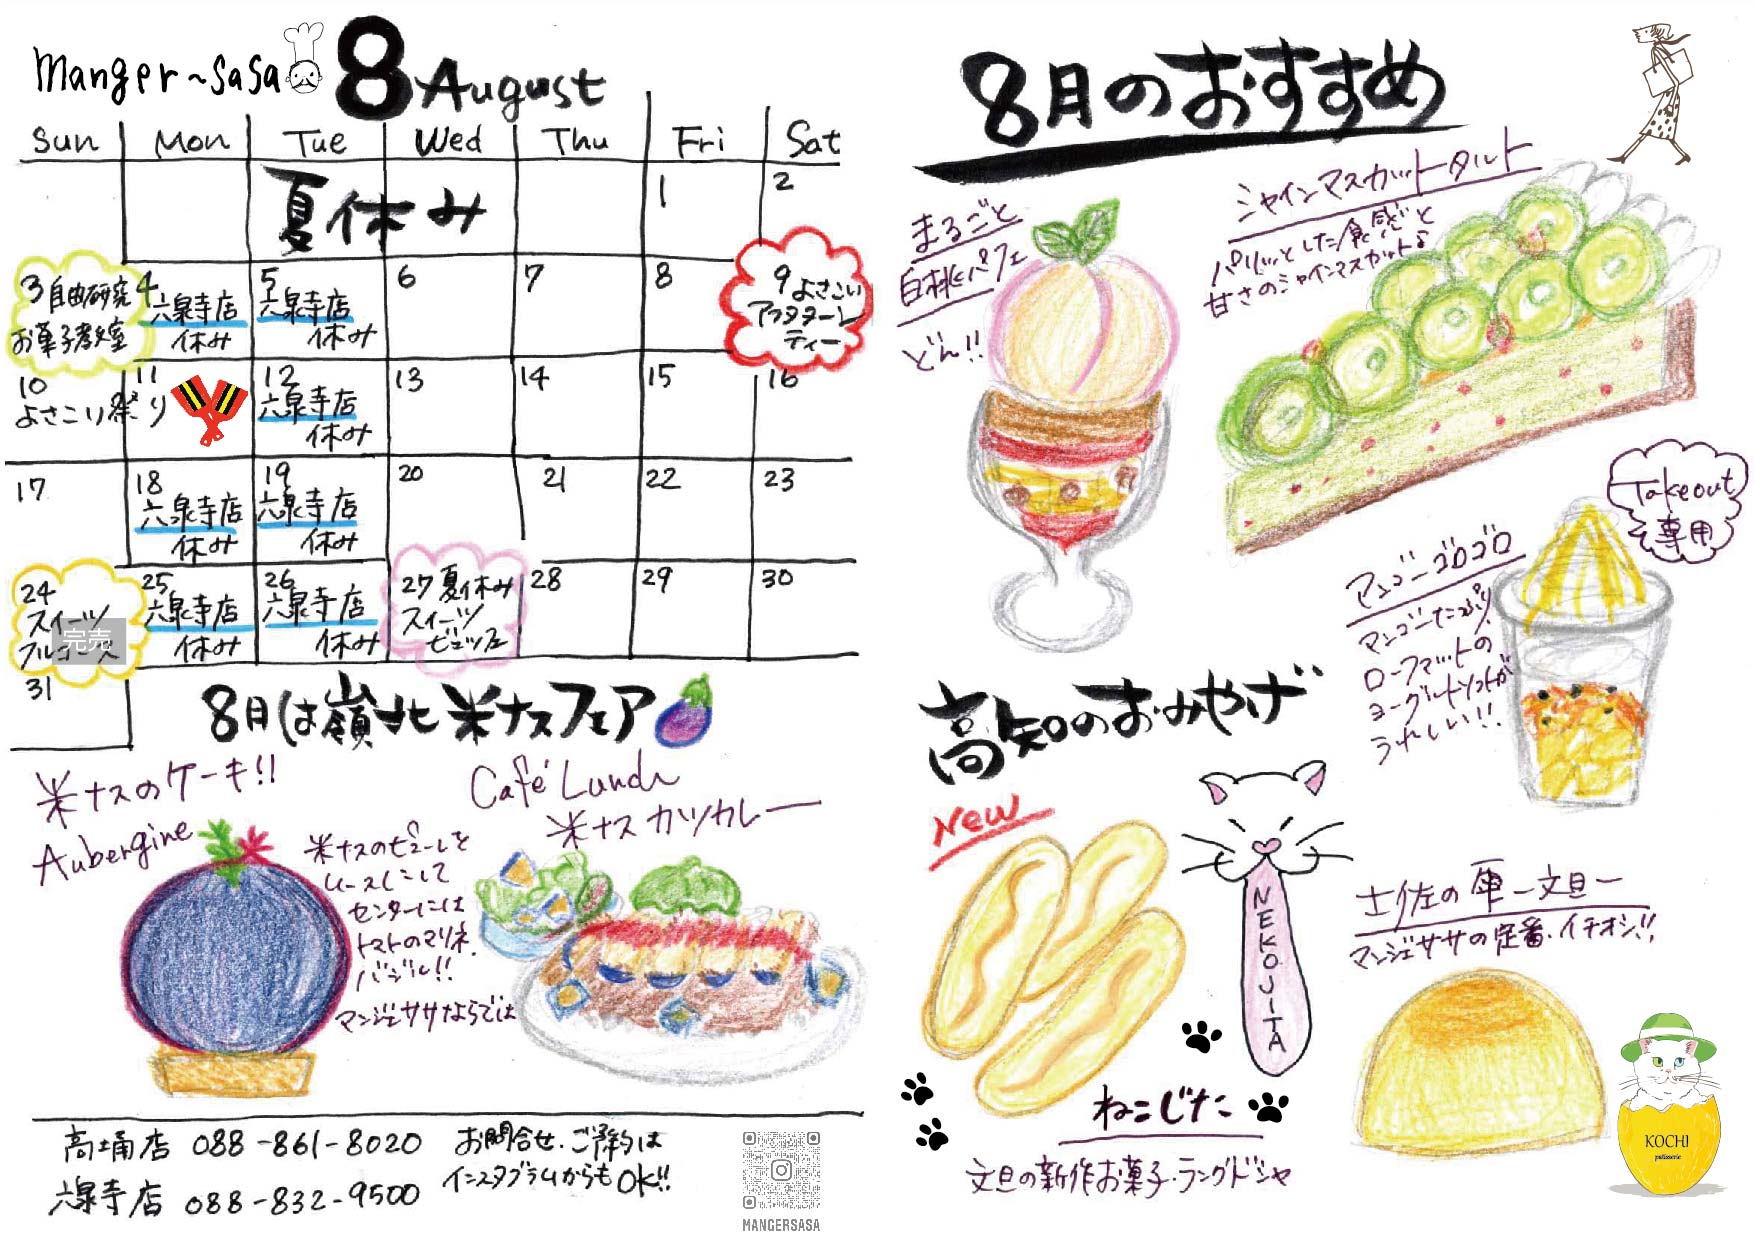 Manger~SaSa
8 August
Sun Mon Tue Wed Thu Fri Sat
夏休み
1
2
3 自由研究
お菓子教室
4
六泉寺店
休み
5
六泉寺店
休み
6
7
8
9 よさこい
アフタヌーン
ティー
10
よさこい祭り
11
12
六泉寺店
休み
13
14
15
16
17
18
六泉寺店
休み
19
六泉寺店
休み
20
21
22
23
24
スイーツ
フルコース
完売
25
六泉寺店
休み
26
六泉寺店
休み
27 夏休み
スイーツ
ビュッフェ
28
29
30
31
8月は嶺北米ナスフェア
米ナスのケーキ!!
Aubergine
米ナスのピューレを
ムースにして
センターには
トマトのマリネ
バジル!!
マンジェササならでは
Café Lunch
米ナスカツカレー
高埇店 088-861-8020
六泉寺店 088-832-9500
お問合せ・ご予約は
インスタグラムからもOK!!
MANGERSASA
8月のおすすめ
まるごと
白桃パフェ
どん!!
シャインマスカットタルト
パリッとした食感と
甘さのシャインマスカット
Takeout
専用
マンゴーゴロゴロ
マンゴーたっぷり
ローファットの
ヨーグルトソフトが
うれしい!!
高知のおみやげ
New
NEKOJITA
ねこじた
文旦の新作お菓子・ラングドシャ
土佐の雫ー文旦ー
マンジェササの定番、イチオシ!!
KOCHI
patisserie